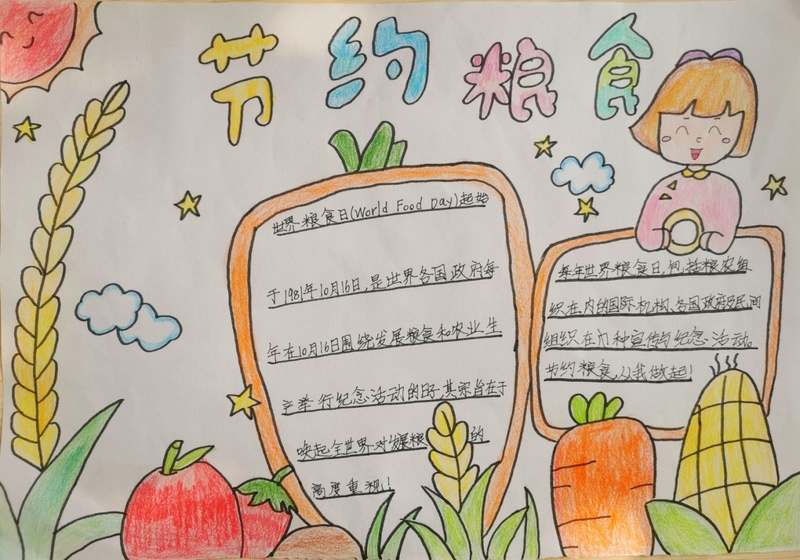 节约粮食
世界粮食日(World Food Day)起始
于1981年10月16日,是世界各国政府每
年在10月16日围绕发展粮食和农业生
产举行纪念活动的日子,其宗旨在于
唤起全世界对发展粮 的
高度重视!
每年世界粮食日,包括粮农组
织在内的国际机构、各国政府及民间
组织在办种宣传与纪念活动。
节约粮食,从我做起!